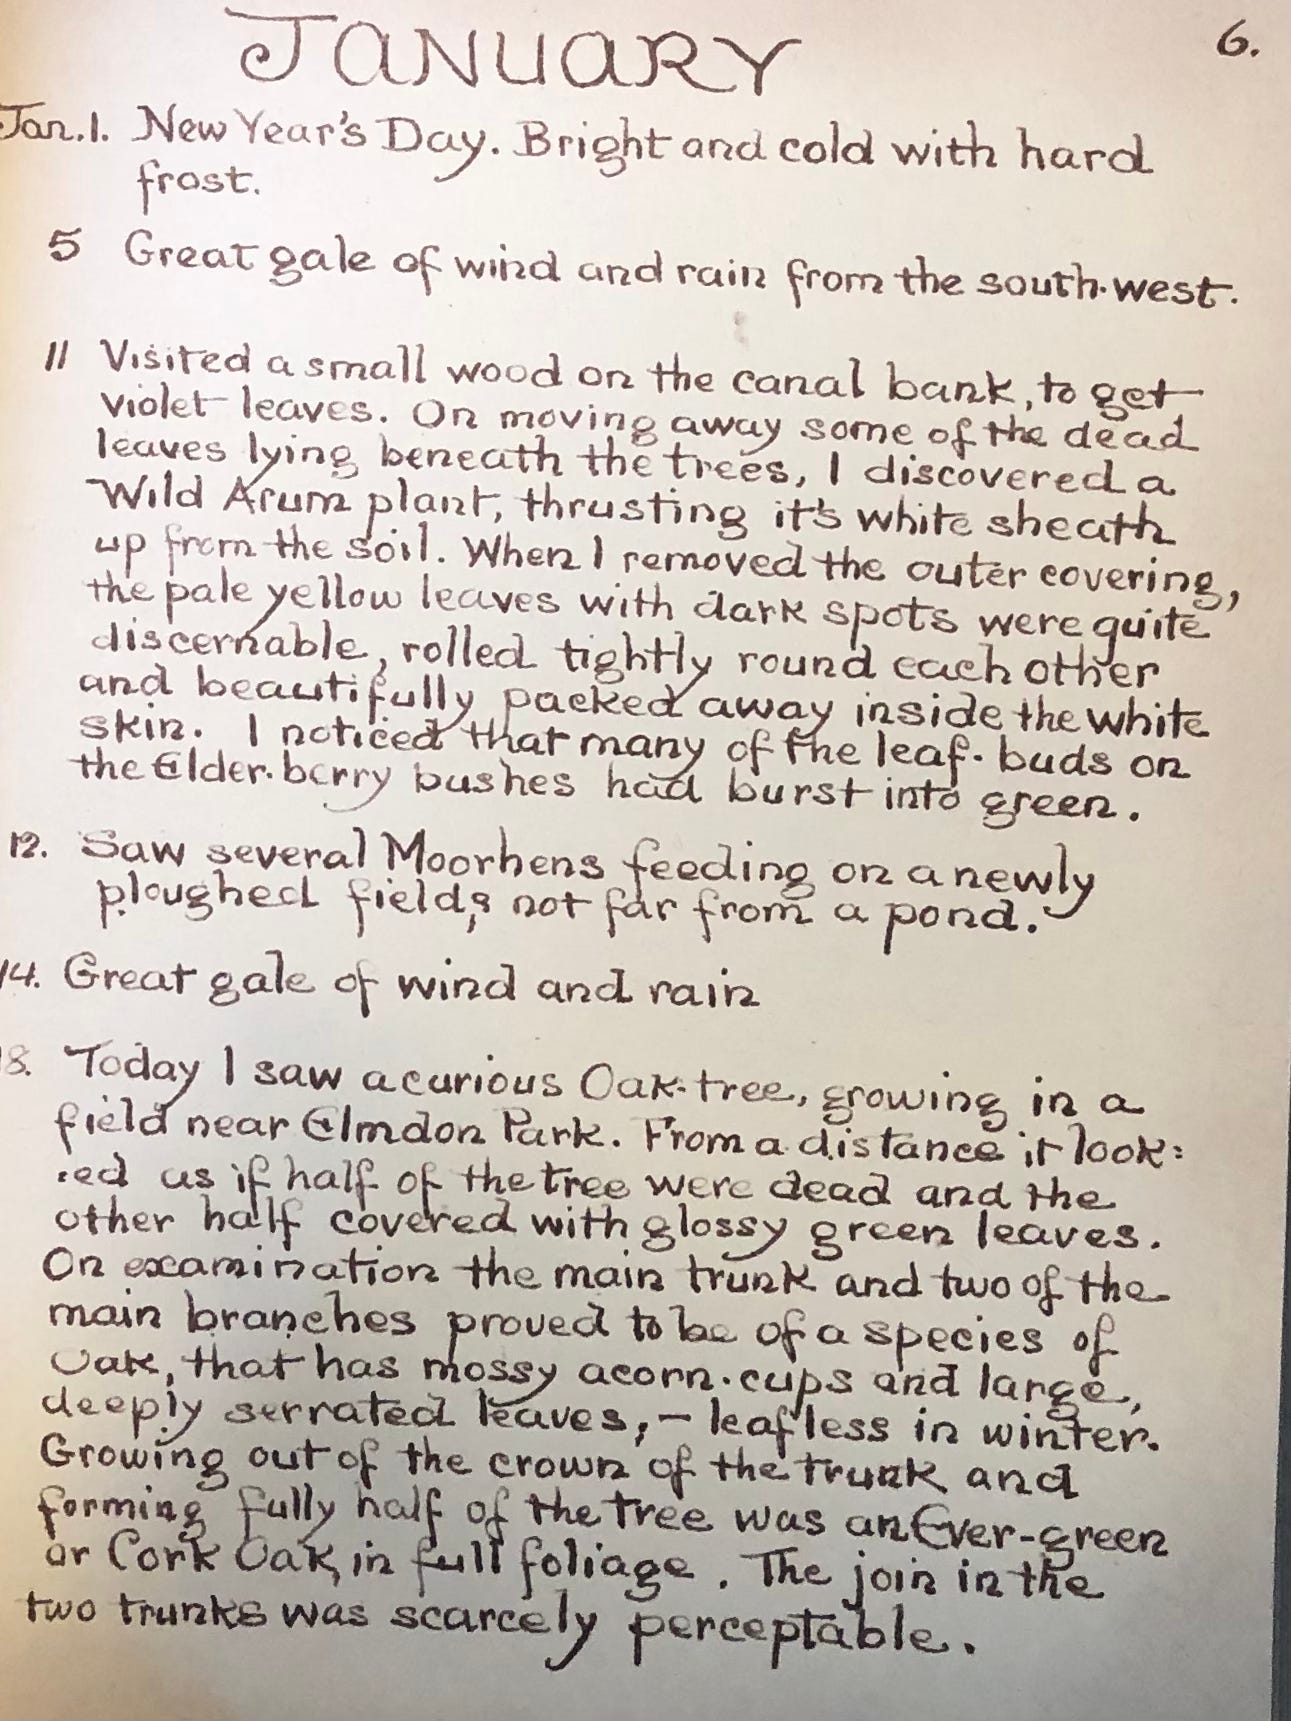 JANUARY
6.
Jan.1. New Year's Day. Bright and cold with hard
frost.
5 Great gale of wind and rain from the south-west.
11 Visited a small wood on the canal bank, to get
violet leaves. On moving away some of the dead
leaves lying beneath the trees, I discovered a
Wild Arum plant, thrusting it's white sheath
up from the soil. When I removed the outer covering,
the pale yellow leaves with dark spots were quite
discernable, rolled tightly round each other
and beautifully packed away inside the white
skin. I noticed that many of the leaf-buds on
the Elder-berry bushes had burst into green.
12. Saw several Moorhens feeding on a newly
ploughed field, not far from a pond.
14. Great gale of wind and rain
18. Today I saw a curious Oak-tree, growing in a
field near Elmdon Park. From a distance it look:
:ed as if half of the tree were dead and the
other half covered with glossy green leaves.
On examination the main trunk and two of the
main branches proved to be of a species of
Oak, that has mossy acorn-cups and large,
deeply serrated leaves, – leafless in winter.
Growing out of the crown of the trunk and
forming fully half of the tree was an Ever-green
or Cork Oak, in full foliage. The join in the
two trunks was scarcely perceptable.